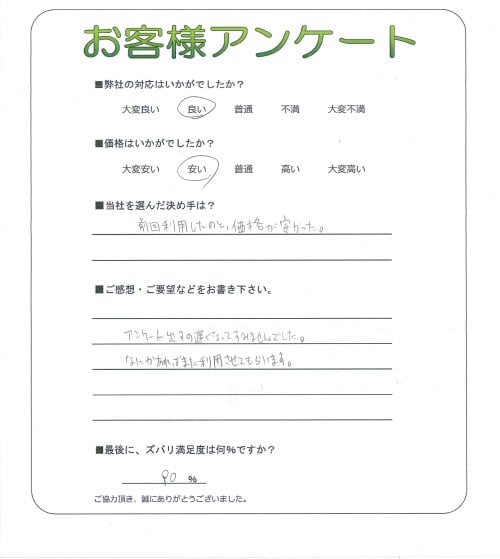 お客様アンケート
■弊社の対応はいかがでしたか？
大変良い 良い 普通 不満 大変不満
■価格はいかがでしたか？
大変安い 安い 普通 高い 大変高い
■当社を選んだ決め手は？
前回利用したのと、価格が安かった。
■ご感想・ご要望などをお書き下さい。
アンケート出すの遅くなってすみませんでした。
なにかあればまた利用させてもらいます。
■最後に、ズバリ満足度は何％ですか？
90 %
ご協力頂き、誠にありがとうございました。